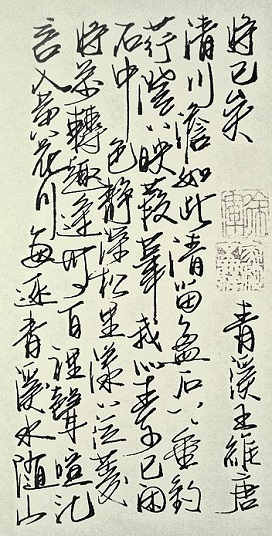 言入黄花川每逐青溪水随山
将萬轉趣途無百里聲喧乱
石中色静深松里漾漾泛菱
荇澄澄映葭葦我心素已闲
清川澹如此請留盘石上垂釣
将已矣
青溪王維唐